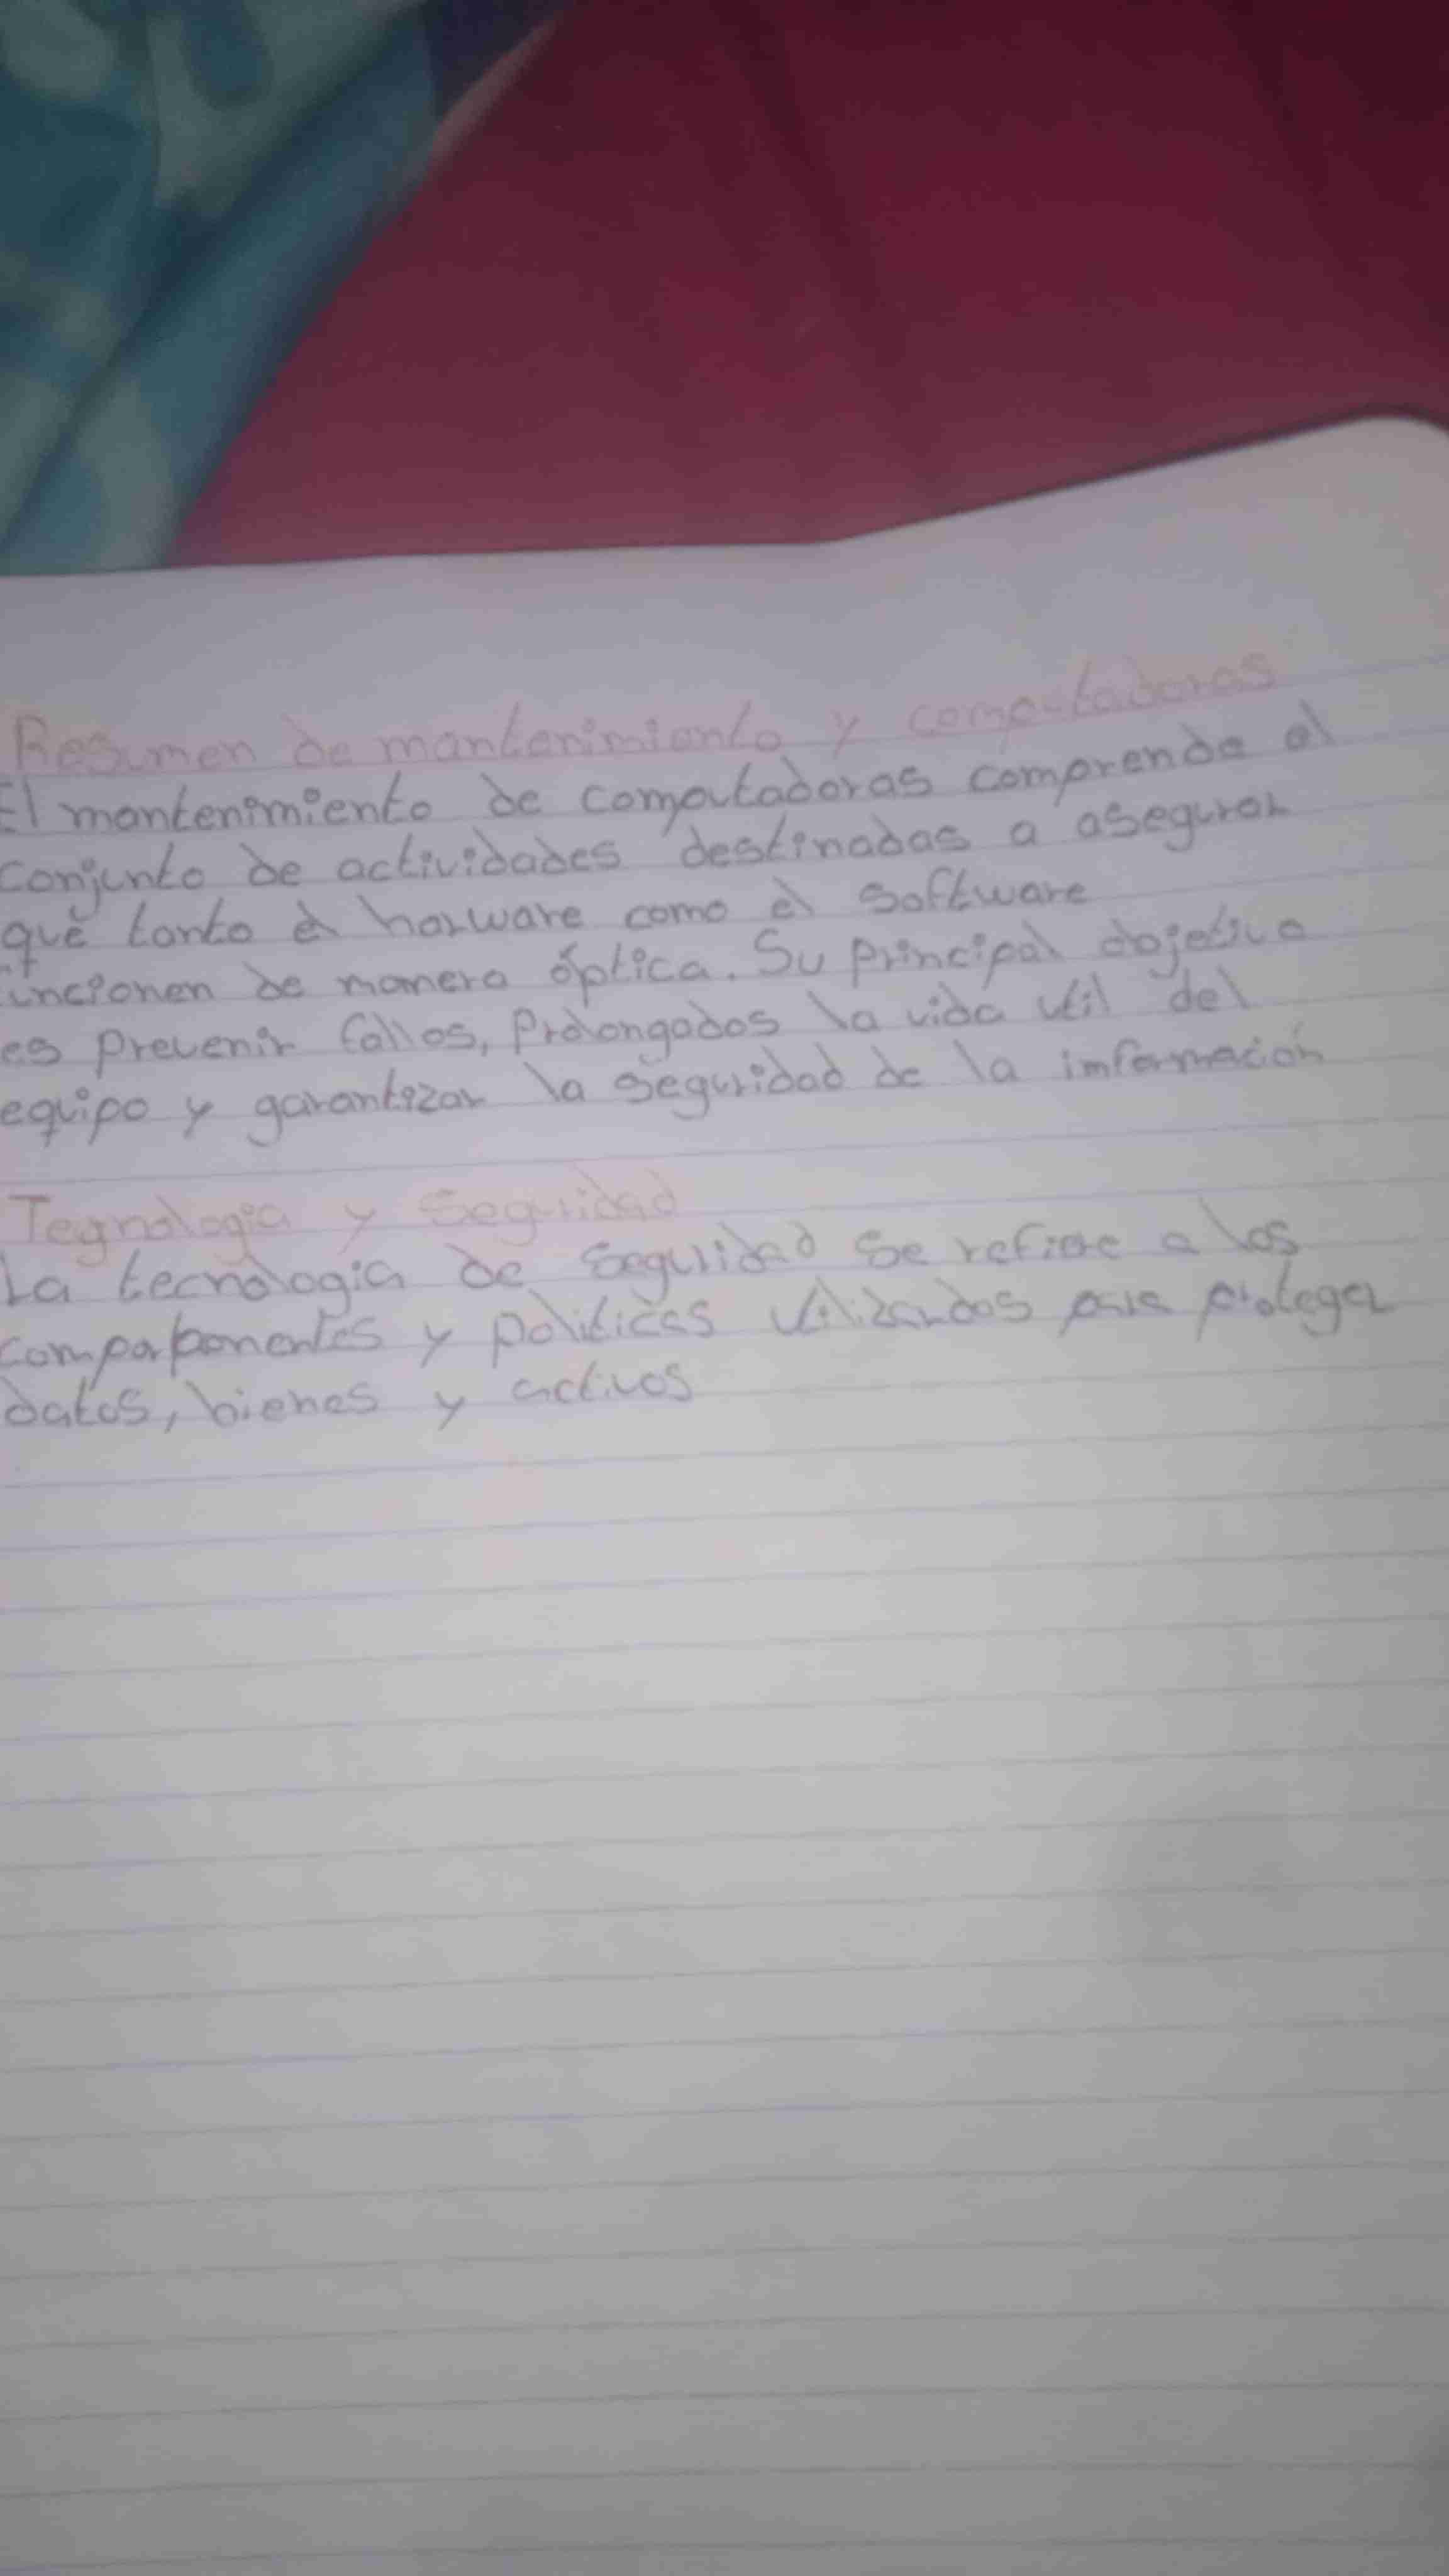 Resumen de mantenimiento y computadoras
El mantenimiento de computadoras comprende el
conjunto de actividades destinadas a asegurar
que tanto el harware como el software
funcionen de manera óptica. Su principal objetivo
es prevenir fallos, Prolongados la vida útil del
equipo y garantizar la seguridad de la imformación
Tegnologia y Seguridad
La tecnologia de seguridad se refiere a los
y politicas utilizandos para proteger
datos, bienes y activos